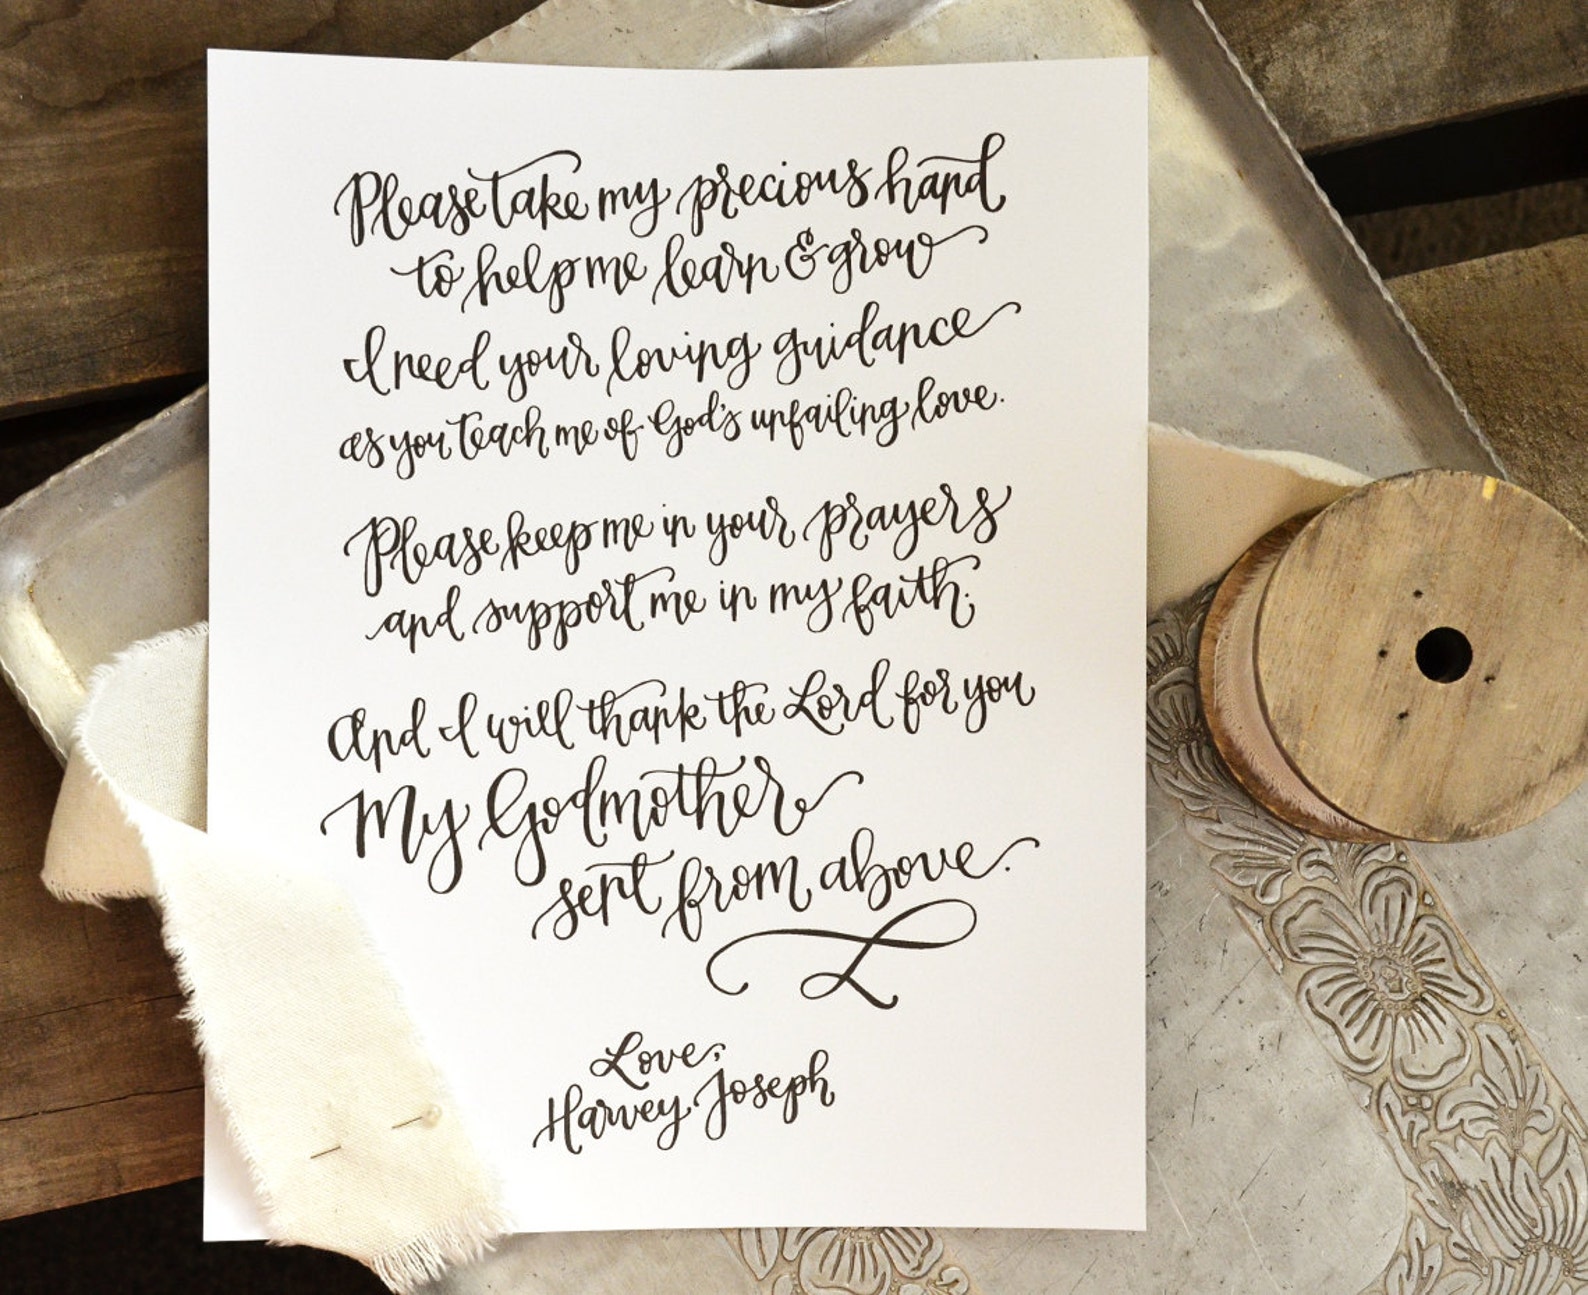 Please take my precious hand
to help me learn & grow
I need your loving guidance
as you teach me of God's unfailing love.
Please keep me in your prayers
and support me in my faith.
And I will thank the Lord for you
My Godmother
sent from above.
Love,
Harvey Joseph